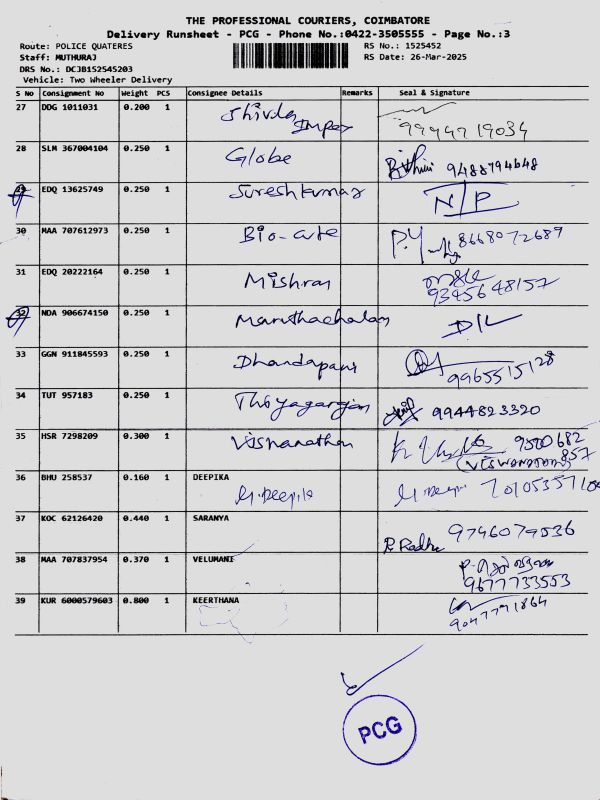 THE PROFESSIONAL COURIERS, COIMBATORE
Delivery Runsheet - PCG - Phone No.:0422-3505555 - Page No.:3
Route: POLICE QUATERES RS No.: 1525452
Staff: MUTHURAJ RS Date: 26-Mar-2025
DRS No.: DCJB152545203
Vehicle: Two Wheeler Delivery
S No Consignment No Weight PCS Consignee Details Remarks Seal & Signature
27 DDG 1011031 0.200 1 Shivda Impex 9994719034
28 SLM 367004104 0.250 1 Globe 9488794648
29 EDQ 13625749 0.250 1 Sureshkumar N/P
30 MAA 707612973 0.250 1 Bio-cute 8668072689
31 EDQ 20222164 0.250 1 Mishran 9345648157
32 NDA 906674150 0.250 1 Maruthachalam D/L
33 GGN 911845593 0.250 1 Dhandapani 9965515128
34 TUT 957183 0.250 1 Thiyagarajan 9944823320
35 HSR 7298209 0.300 1 Viswanathan 9500682
857
36 BHU 258537 0.160 1 DEEPIKA
G.Deepika
37 KOC 62126420 0.440 1 SARANYA 9746079536
R Radha
38 MAA 707837954 0.370 1 VELUMANI
9677733553
39 KUR 6000579603 0.800 1 KEERTHANA
9047791864
PCG